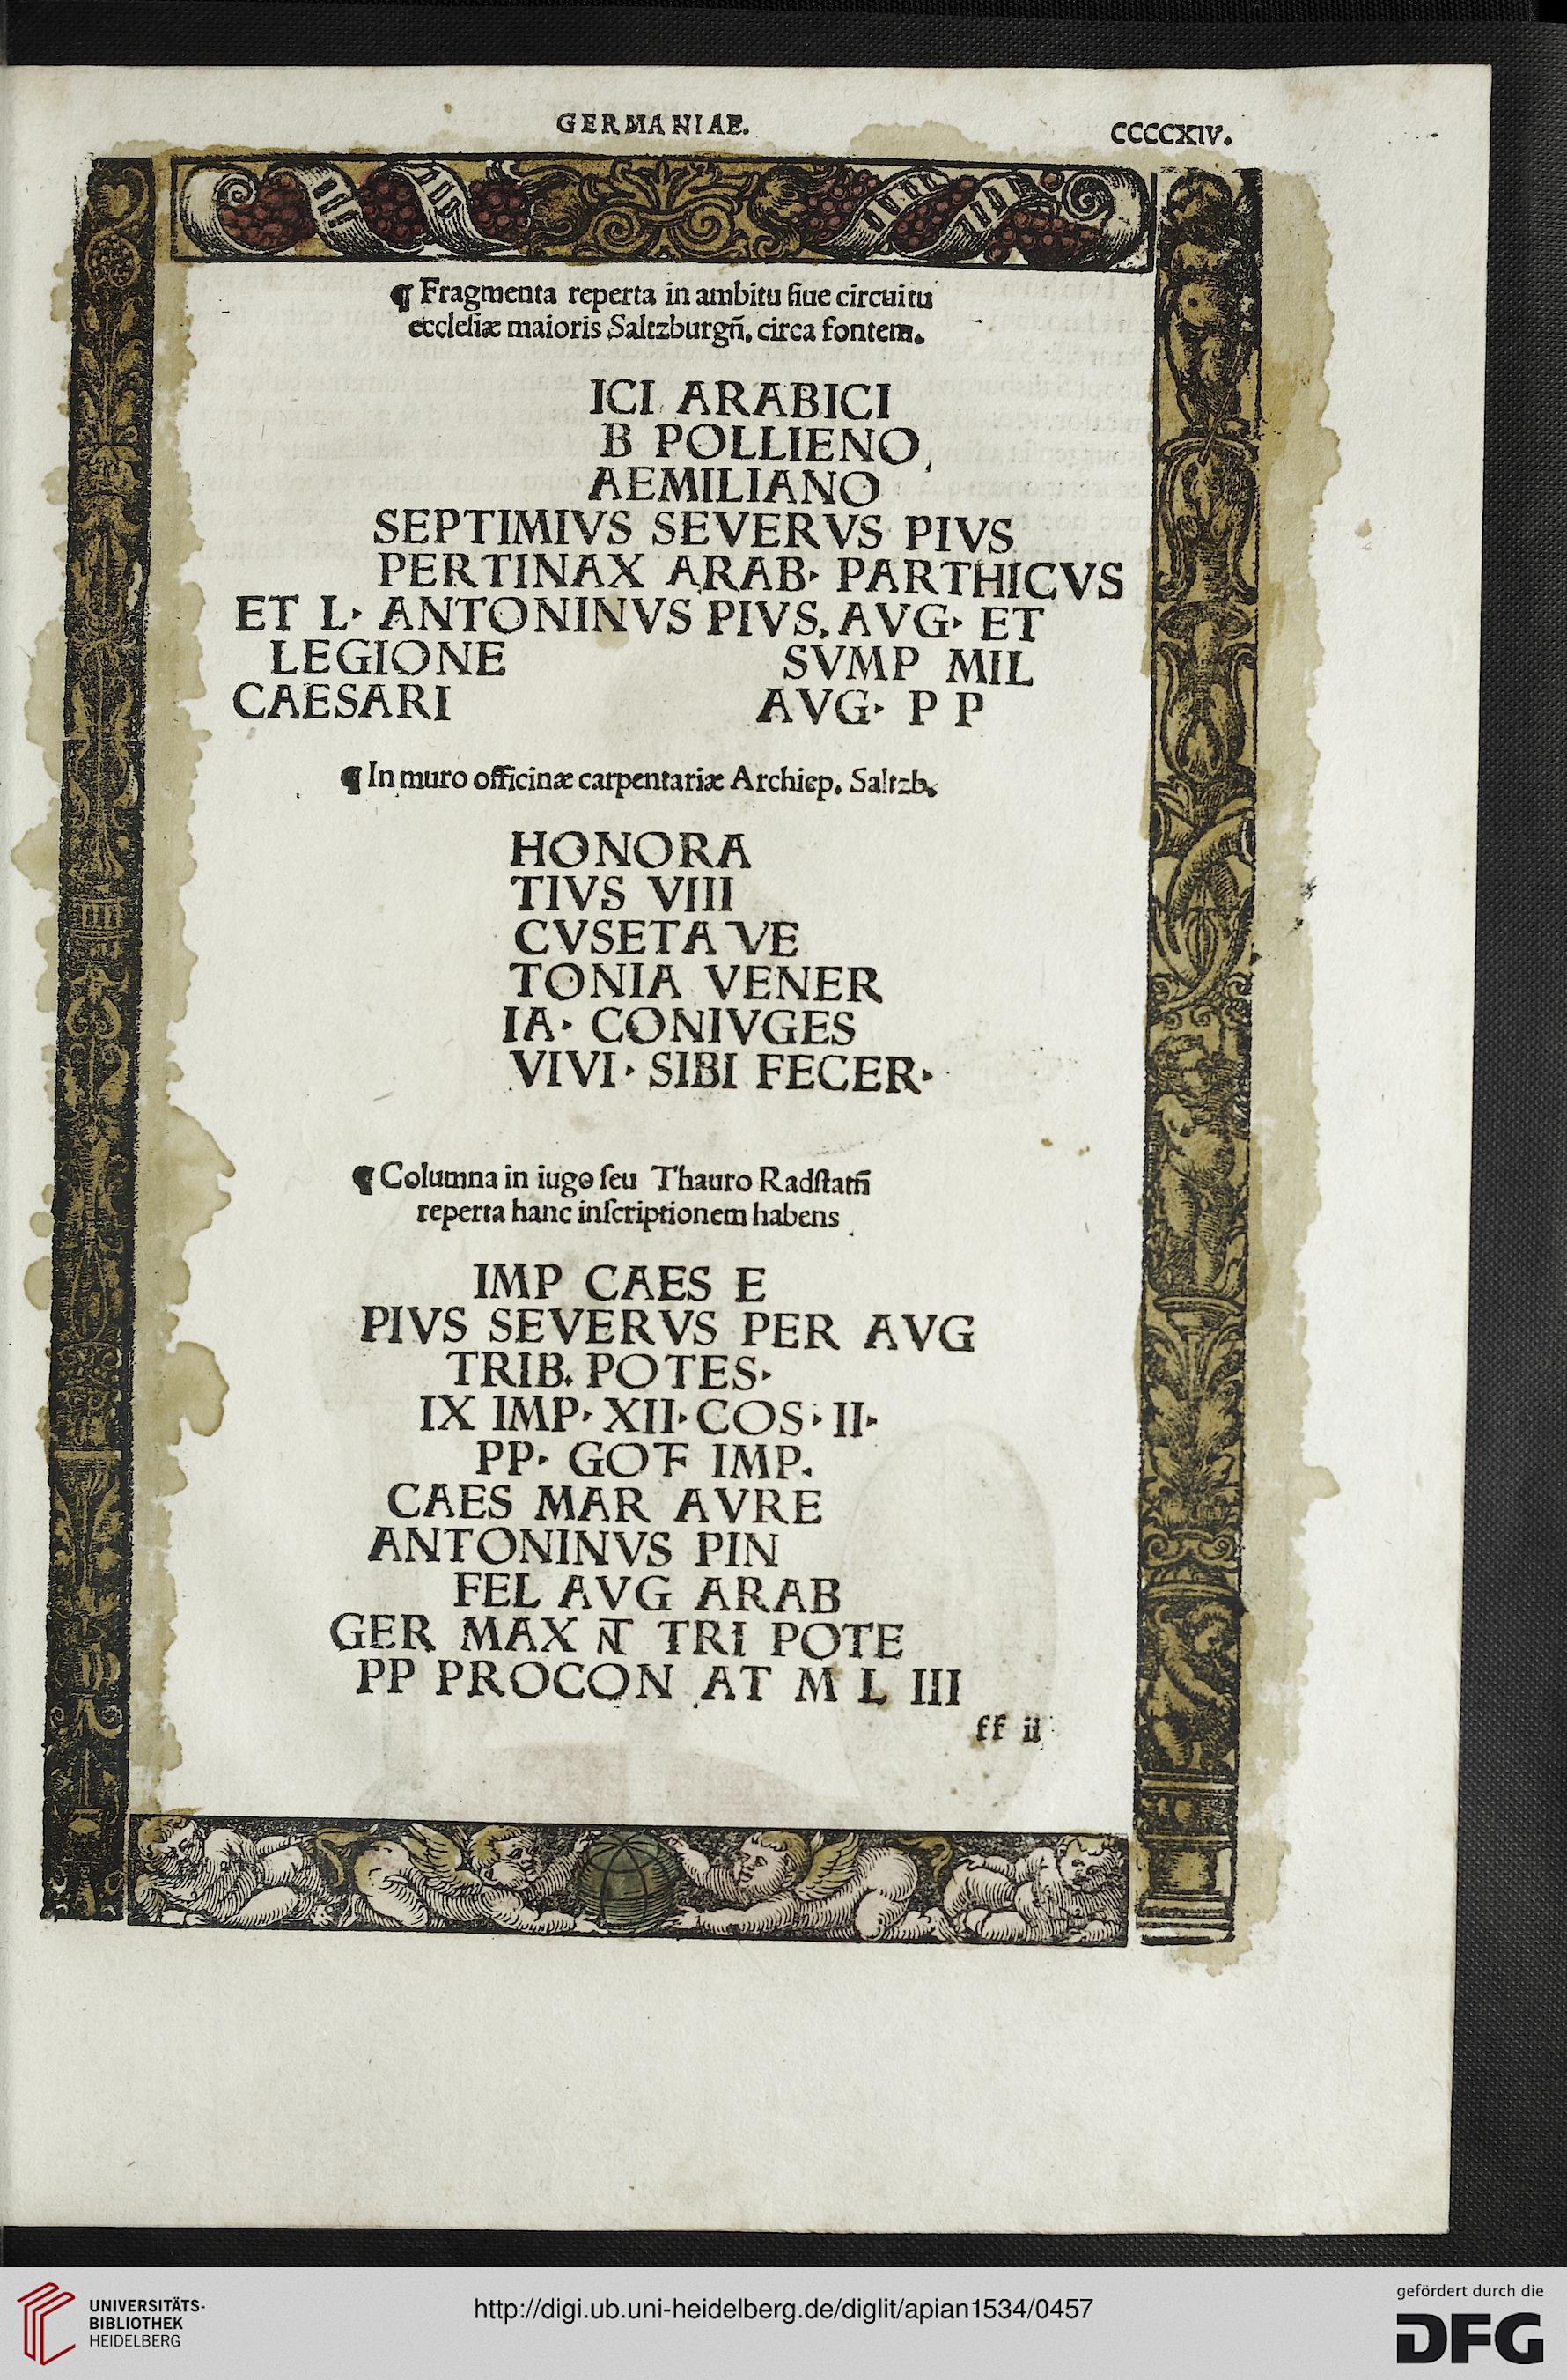 GERMANIAE. CCCCXIV.
¶ Fragmenta reperta in ambitu ſiue circuitu
eccleſiæ maioris Saltzburgñ. circa fontem.
ICI ARABICI
B POLLIENO
AEMILIANO
SEPTIMIVS SEVERVS PIVS
PERTINAX ARAB· PARTHICVS
ET L· ANTONINVS PIVS. AVG· ET
LEGIONE SVMP MIL
CAESARI AVG· P P
¶ In muro officinæ carpentariæ Archiep. Saltzb.
HONORA
TIVS VIII
CVSETA VE
TONIA VENER
IA· CONIVGES
VIVI· SIBI FECER·
¶ Columna in iugo ſeu Thauro Radſtatñ
reperta hanc inſcriptionem habens
IMP CAES E
PIVS SEVERVS PER AVG
TRIB. POTES·
IX IMP· XII· COS· II·
PP· GOF IMP.
CAES MAR AVRE
ANTONINVS PIN
FEL AVG ARAB
GER MAX NT TRI POTE
PP PROCON AT M L III
ff ii
UNIVERSITÄTS-
BIBLIOTHEK
HEIDELBERG
http://digi.ub.uni-heidelberg.de/diglit/apian1534/0457
gefördert durch die
DFG